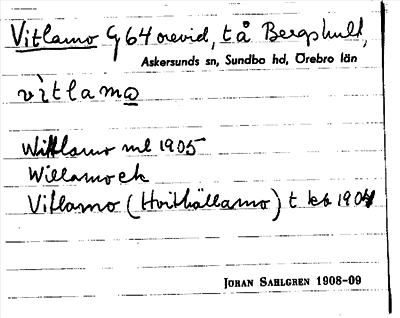 Vitlamo G 64 orevid, t å Bergshult,
Askersunds sn, Sundbo hd, Örebro län
vìtlamo
Wittlamo ml 1905
Willamo ek
Vitlamo (Hvithällamo) t kb 1904
JOHAN SAHLGREN 1908-09